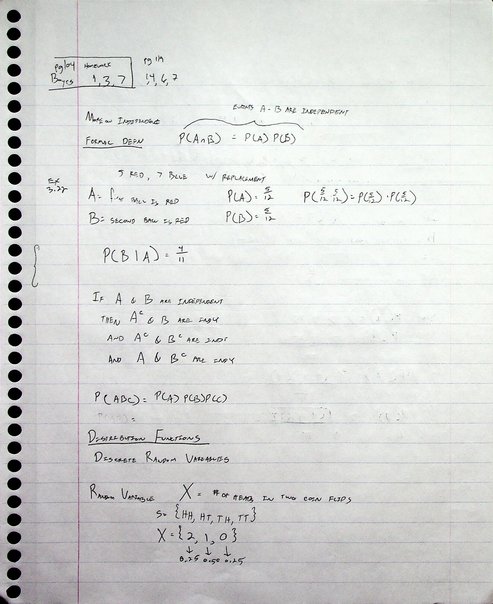 pg 104 Homework pg 119
Bayes 1, 3, 7 1, 4, 6, 7
Events A - B are independent
More on Independence
Formal Defn P(A∩B) = P(A) P(B)
Ex 3.22
5 Red, 7 Blue w/ replacement
A = first ball is red P(A) = 5/12 P(5/12 5/12) = P(5/12) · P(5/12)
B = second ball is red P(B) = 5/12
P(B|A) = 4/11
If A & B are independent
then Aᶜ & B are indy
and Aᶜ & Bᶜ are indy
and A & Bᶜ are indy
P(ABC) = P(A) P(B) P(C)
Distribution Functions
Discrete Random Variables
Random Variable X = # of heads in two coin flips
S = {HH, HT, TH, TT}
X = {2, 1, 0}
↓ ↓ ↓
0.25 0.50 0.25